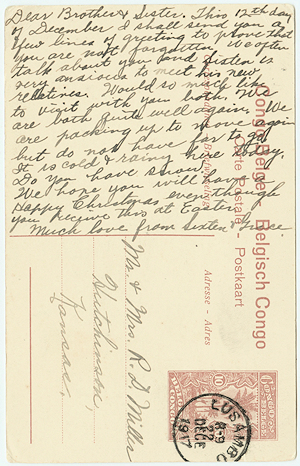 Dear Brother & Sister. This 12th day
of December I shall send you a
few lines of greeting to prove that
you are not forgotten. We often
talk about you and Sixten is
very anxious to meet his new
relatives. Would so much like
to visit with you both. We
are both quite well again. We
are packing up to move again
but do not have far to go.
It is cold & rainy here to-day.
Do you have snow?
We hope you will have a
Happy Christmas even though
you receive this at Easter.
Much love from Sixten &
Mr. & Mrs. R. D. Miller
Hutchinson,
Kansas.
Congo Belge - Belgisch Congo
Carte Postale - Postkaart
Adresse - Adres
LUSAMBO
8-9
22
DECE
1917
10